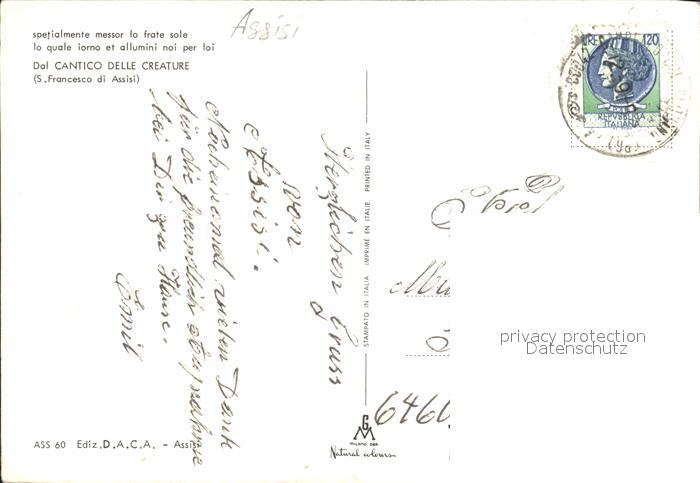 Assisi
spetialmente messor lo frate sole
lo quale iorno et allumini noi per loi
Dal CANTICO DELLE CREATURE
(S. Francesco di Assisi)
LIRE 120
REPVBBLICA
ITALIANA
Herzlichen Gruss
von
Assisi.
Nocheinmal vielen Dank
für die freundlich
bei Dir zu Hause.
Emil
STAMPATO IN ITALIA IMPRIMÉ EN ITALIE PRINTED IN ITALY
privacy protection
Datenschutz
646
GM
MILANO DEP.
Natural colours
ASS 60 Ediz. D.A.C.A. - Assisi